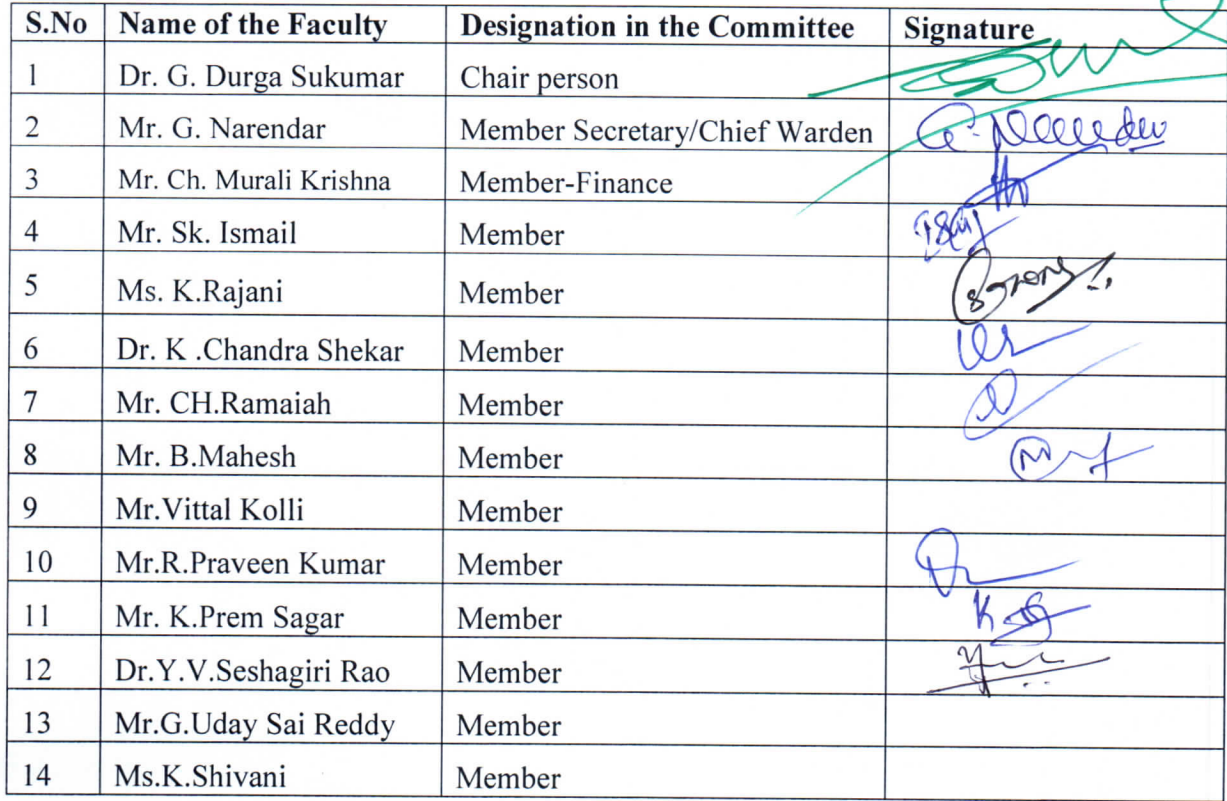 S.No Name of the Faculty Designation in the Committee Signature
1 Dr. G. Durga Sukumar Chair person
2 Mr. G. Narendar Member Secretary/Chief Warden
3 Mr. Ch. Murali Krishna Member-Finance
4 Mr. Sk. Ismail Member
5 Ms. K.Rajani Member
6 Dr. K .Chandra Shekar Member
7 Mr. CH.Ramaiah Member
8 Mr. B.Mahesh Member
9 Mr.Vittal Kolli Member
10 Mr.R.Praveen Kumar Member
11 Mr. K.Prem Sagar Member
12 Dr.Y.V.Seshagiri Rao Member
13 Mr.G.Uday Sai Reddy Member
14 Ms.K.Shivani Member